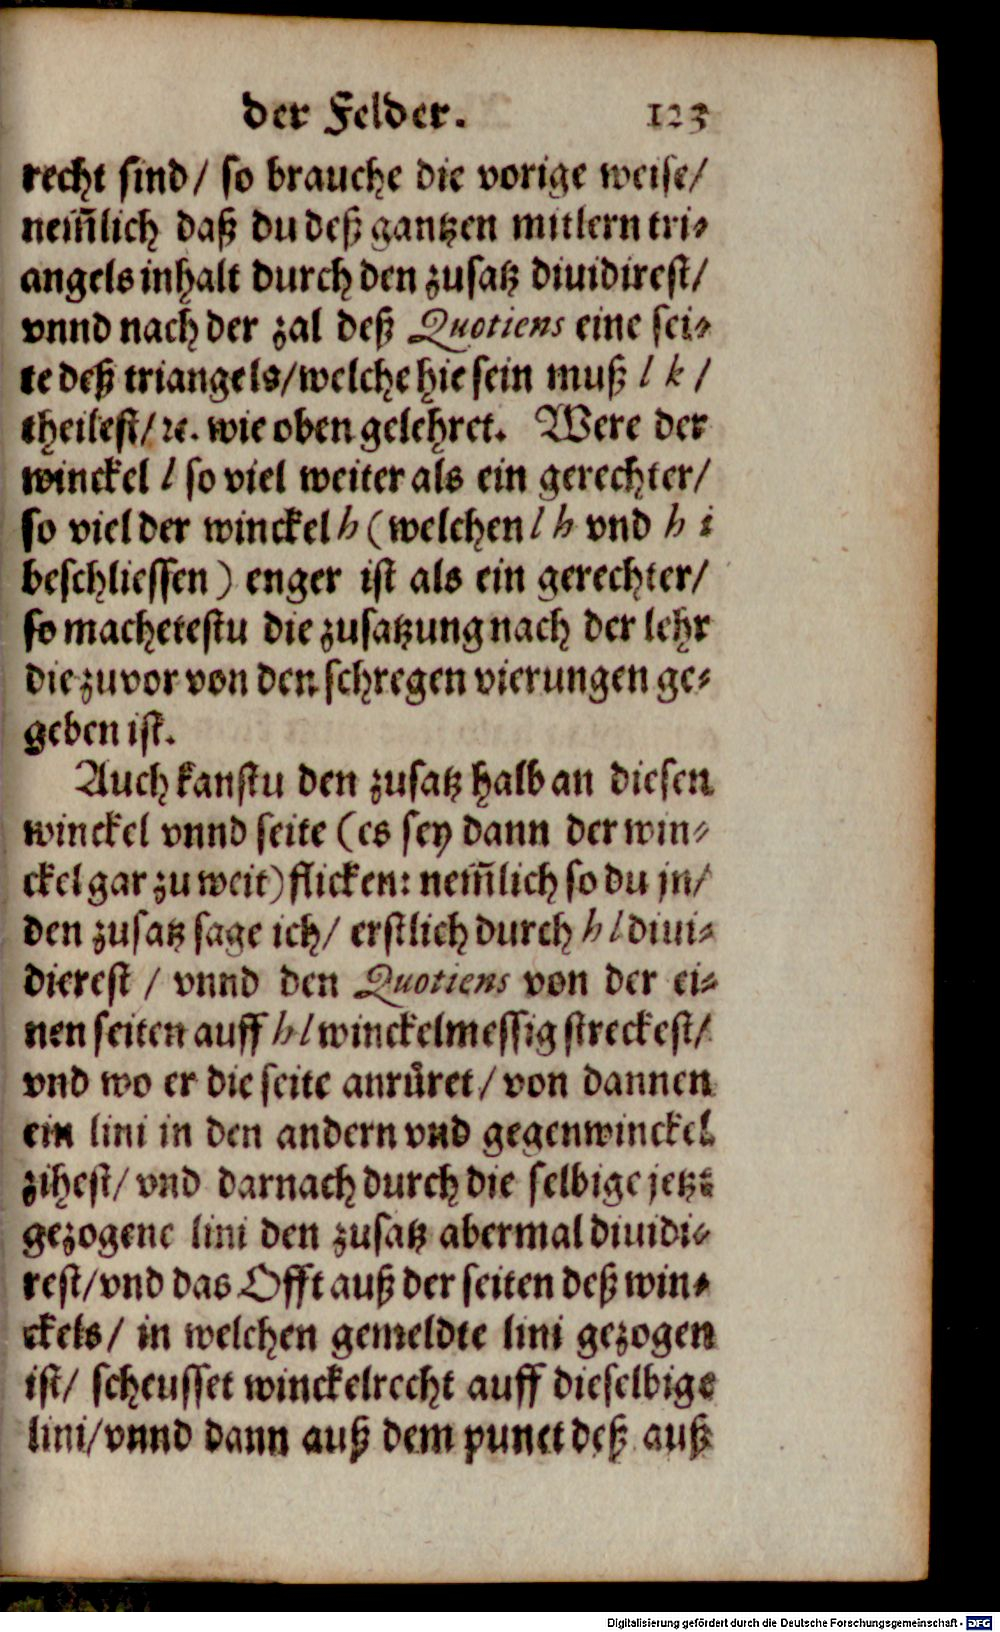 der Felder. 123
recht sind/ so brauche die vorige weise/
nem̃lich daß du deß gantzen mitlern tri⸗
angels inhalt durch den zusatz diuidirest/
vnnd nach der zal deß Quotiens eine sei⸗
te deß triangels/welche hie sein muß l k /
theilest/ ꝛc. wie oben gelehret. Were der
winckel l so viel weiter als ein gerechter/
so viel der winckel h (welchen l h vnd h i
beschliessen) enger ist als ein gerechter/
so machetestu die zusatzung nach der lehr
die zuvor von den schregen vierungen ge⸗
geben ist.
Auch kanstu den zusatz halb an diesen
winckel vnnd seite (es sey dann der win⸗
ckel gar zu weit) flicken: nem̃lich so du jn/
den zusatz sage ich/ erstlich durch h l diui⸗
dierest / vnnd den Quotiens von der ei⸗
nen seiten auff h l winckelmessig streckest/
vnd wo er die seite anrůret/ von dannen
ein lini in den andern vnd gegenwinckel
zihest/ vnd darnach durch die selbige jetzt
gezogene lini den zusatz abermal diuidi⸗
rest/vnd das Offt auß der seiten deß win⸗
ckels/ in welchen gemeldte lini gezogen
ist/ scheusset winckelrecht auff dieselbige
lini/vnnd dann auß dem punct deß auß
Digitalisierung gefördert durch die Deutsche Forschungsgemeinschaft - DFG